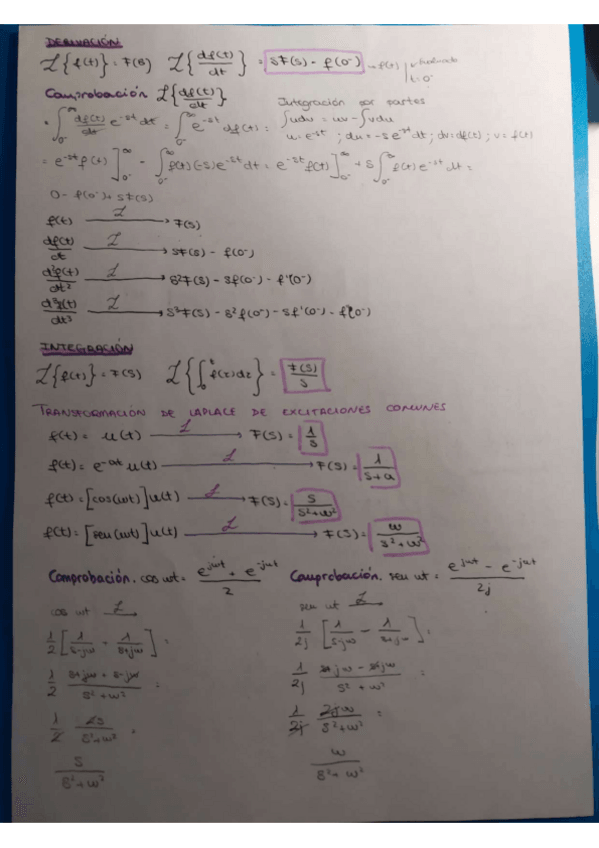 DERIVACIÓN
ℒ{f(t)} = F(s) ℒ{df(t)/dt} = sF(s) - f(0⁻) → f(t) | t=0⁻
Comprobación ℒ{df(t)/dt}
Integración por partes
• ∫₀₋^∞ df(t)/dt e^-st dt = ∫₀₋^∞ e^-st df(t) = ∫udv = uv - ∫vdu
u = e^-st ; du = -s e^-st dt ; dv = df(t) ; v = f(t)
= e^-st f(t) ]₀₋^∞ - ∫₀₋^∞ f(t)(-s)e^-st dt = e^-st f(t) ]₀₋^∞ + s ∫₀₋^∞ f(t) e^-st dt =
0 - f(0⁻) + sF(s)
f(t) —ℒ→ F(s)
df(t)/dt —ℒ→ sF(s) - f(0⁻)
d²f(t)/dt² —ℒ→ s²F(s) - sf(0⁻) - f'(0⁻)
d³f(t)/dt³ —ℒ→ s³F(s) - s²f(0⁻) - sf'(0⁻) - f''(0⁻)
INTEGRACIÓN
ℒ{f(t)} = F(s) ℒ{∫₀^t f(τ)dτ} = F(s)/s
TRANSFORMACIÓN DE LAPLACE DE EXCITACIONES COMUNES
f(t) = u(t) —ℒ→ F(s) = 1/s
f(t) = e^-at u(t) —ℒ→ F(s) = 1/(s+a)
f(t) = [cos(ωt)]u(t) —ℒ→ F(s) = s/(s²+ω²)
f(t) = [sen(ωt)]u(t) —ℒ→ F(s) = ω/(s²+ω²)
Comprobación. cos ωt = (e^jωt + e^-jωt)/2 Comprobación. sen ωt = (e^jωt - e^-jωt)/2j
cos ωt —ℒ→
1/2 [1/(s-jω) - 1/(s+jω)] =
1/2 (s+jω + s-jω)/(s²+ω²) =
1/2 2s/(s²+ω²) =
s/(s²+ω²)
sen ωt —ℒ→
1/2j [1/(s-jω) - 1/(s+jω)] =
1/2j (s+jω - s+jω)/(s²+ω²) =
1/2j 2jω/(s²+ω²) =
ω/(s²+ω²)